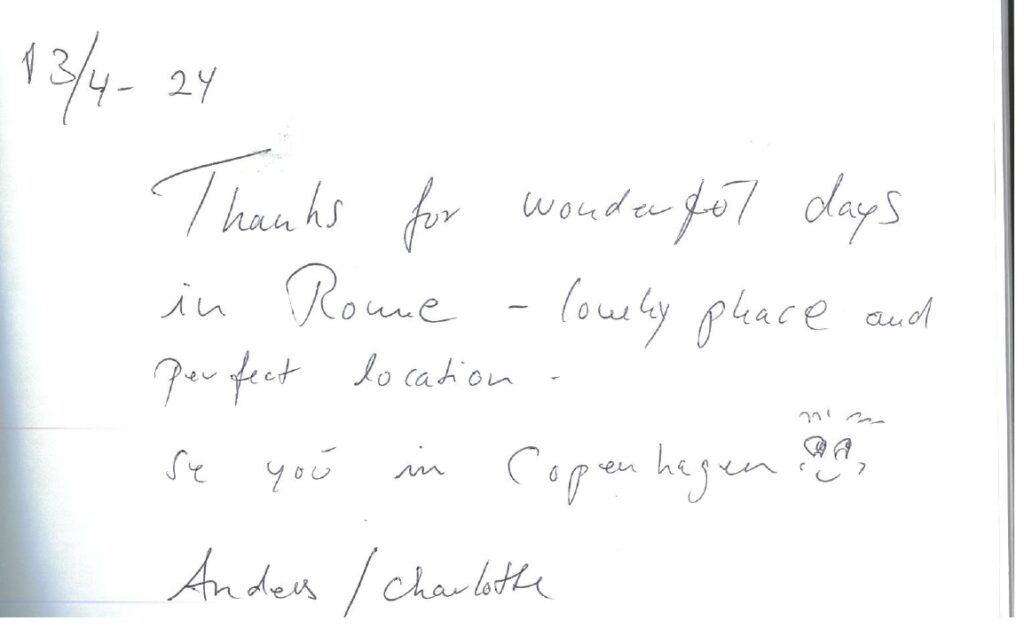 13/4- 24
Thanks for wonderful days
in Rome - lovely place and
perfect location.
Se you in Copenhagen
Anders / Charlotte